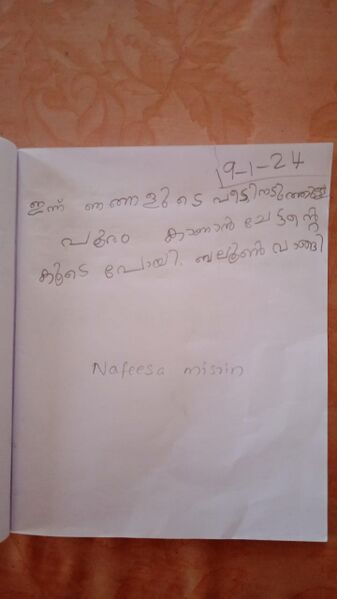 9-1-24
ഇന്ന് ഞങ്ങളുടെ വീട്ടിനടുത്തുള്ള
പൂരം കാണാൻ ചേട്ടന്റെ
കൂടെ പോയി. ബലൂൺ വാങ്ങി
Nafeesa misrin